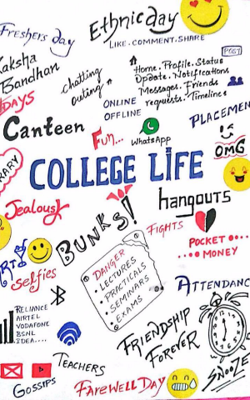 Freshers day
Ethnic day
LIKE. COMMENT. SHARE
POST
Raksha
Bandhan
chatting
outing
Home. Profile. Status
Update. Notifications
Messages. Friends
requests. Timeline
DAYS
ONLINE
OFFLINE
PLACEMENT
Canteen
Fun...
WhatsApp
OMG
COLLEGE LiFE
Jealousy
hangouts
BUNKS!
FIGHTS
POCKET
MONEY
Selfies
DANGER
LECTURES
PRACTICALS
SEMINARS
EXAMS
ATTENDANC
RELIANCE
AIRTEL
VODAFONE
BSNL
IDEA....
FRIENDSHIP
FOREVER
SNOOZE
TEACHERS
GOSSIPS
FAREWELL DAY